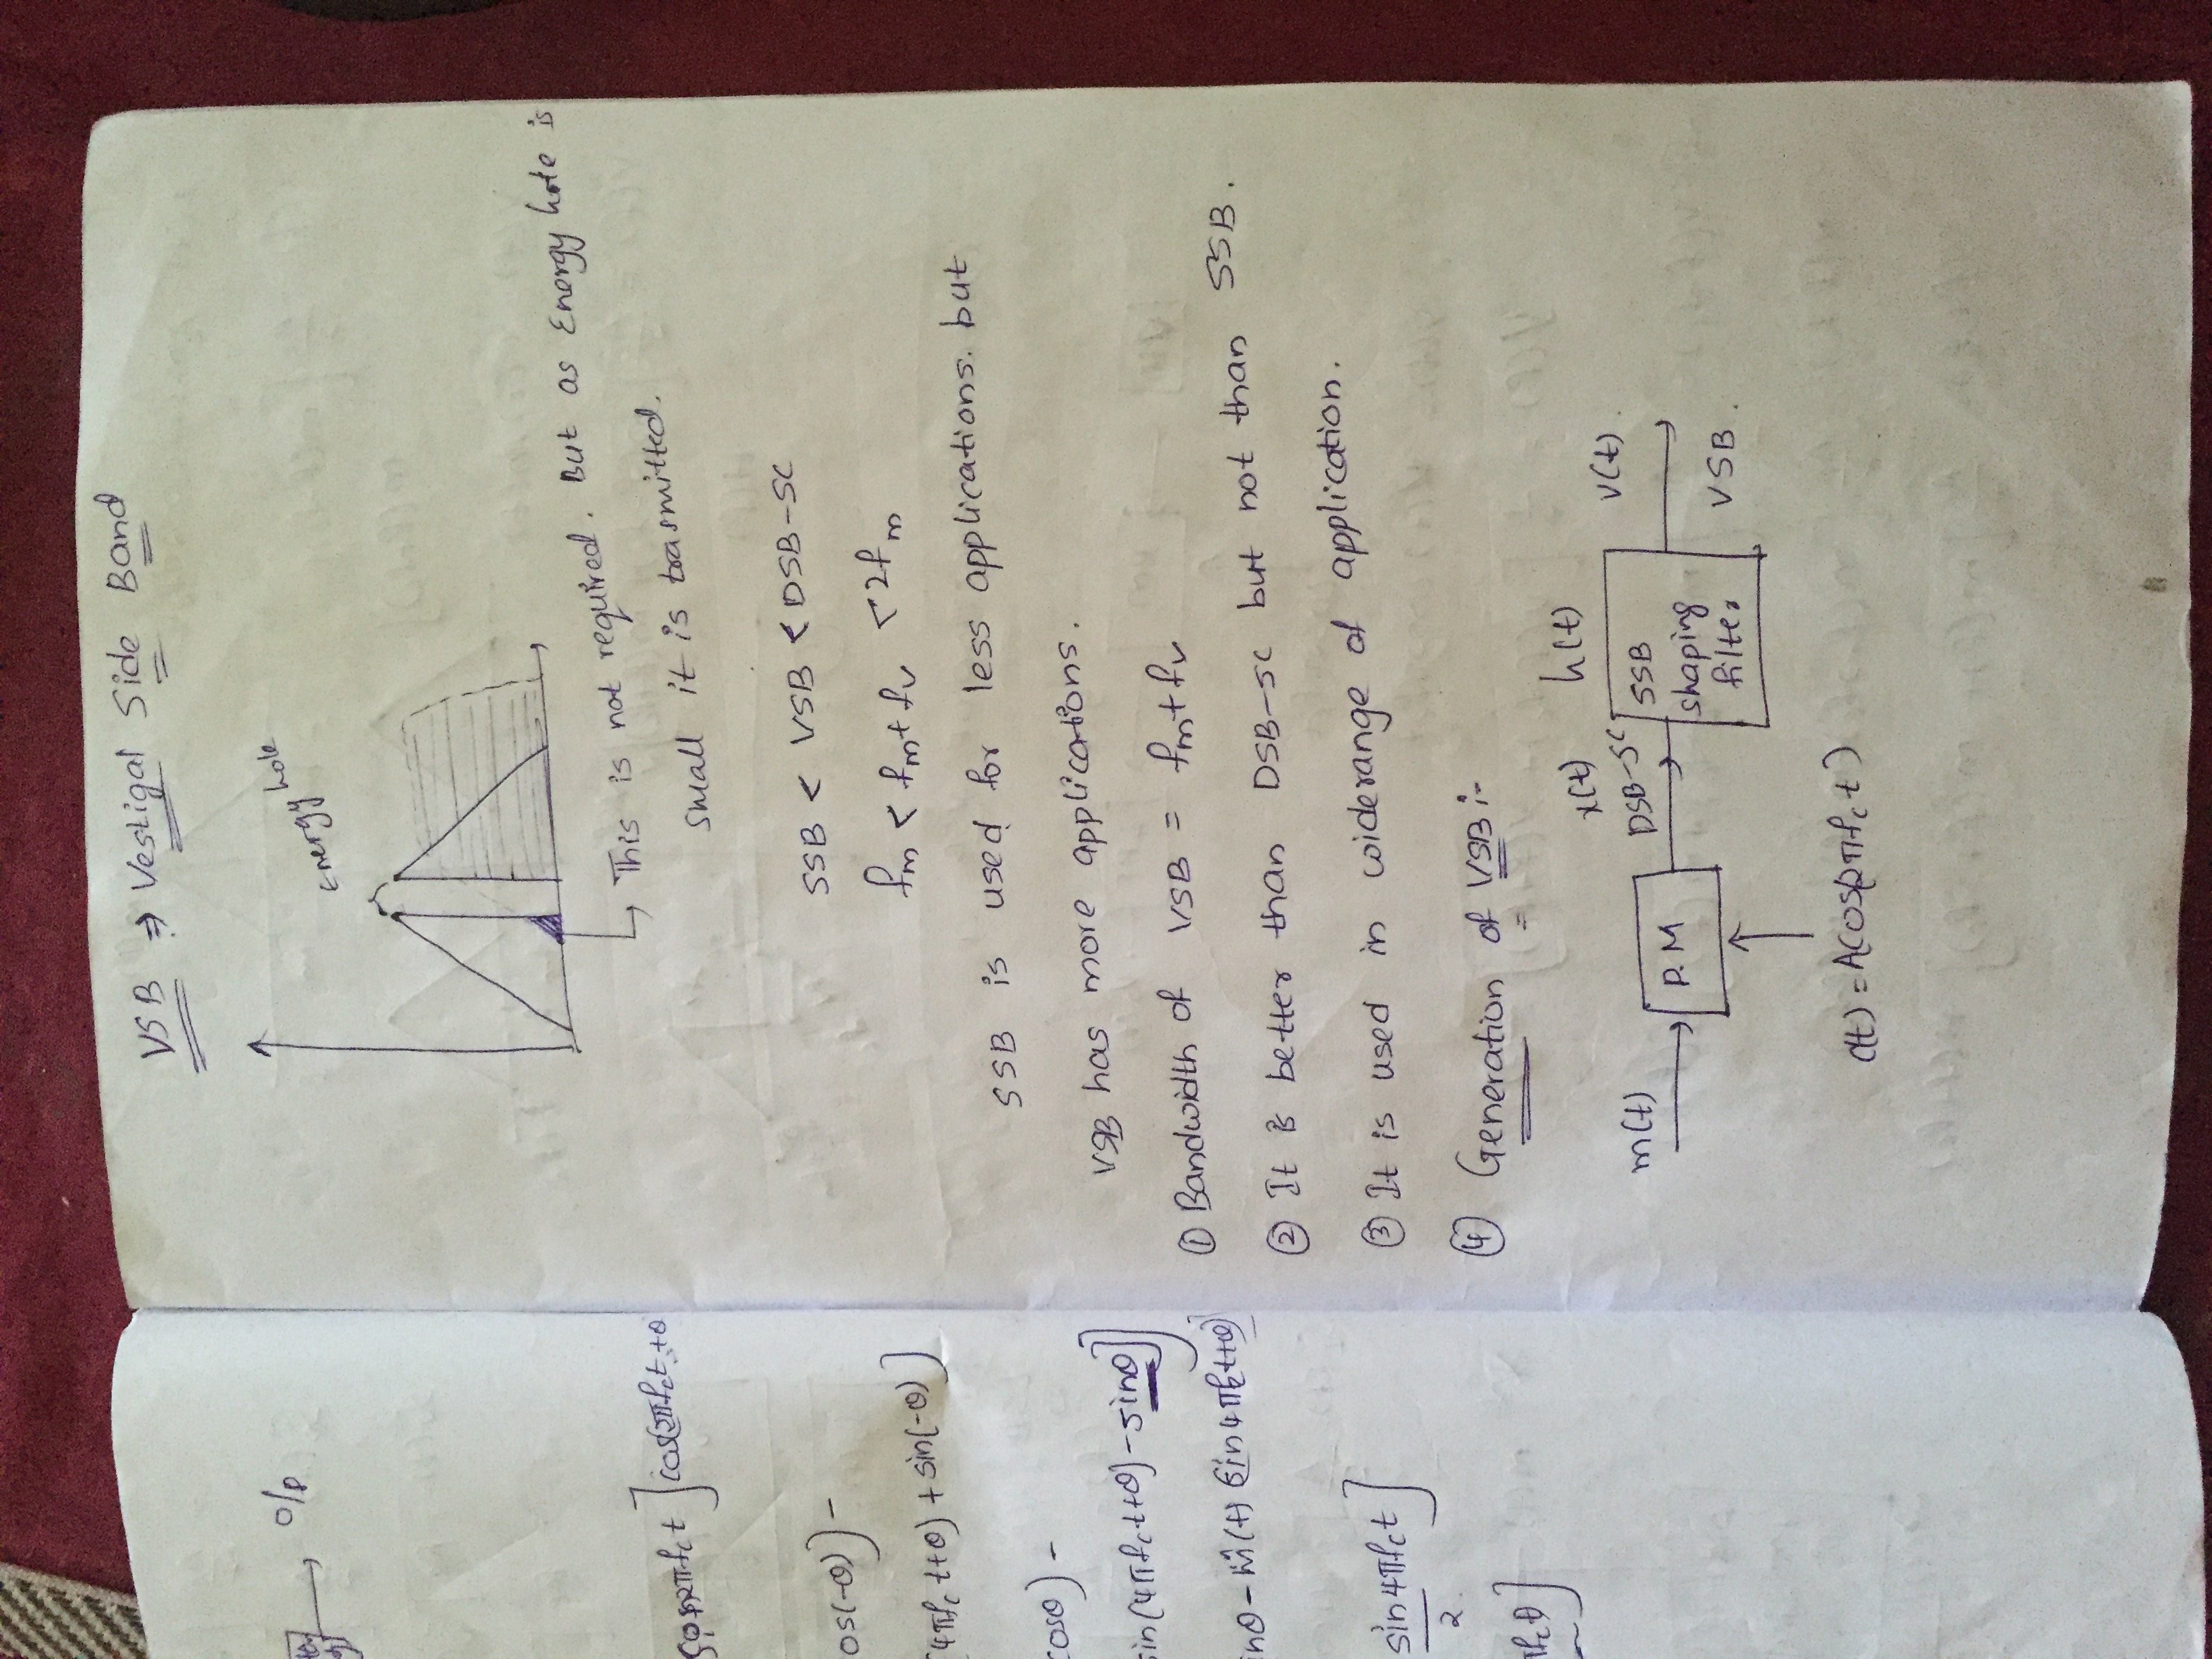 O/P
cos2πfct + θ
os(-θ)] -
(4πfct+θ) + sin(-θ)]
cosθ) -
sin(4πfct+θ) - sinθ]]
inθ - m̂(t) sin4πfct+θ)
sin4πfct]
2
VSB ⇒ Vestigal Side Band
Energy hole
This is not required. But as Energy hole is
small it is trasmitted.
SSB < VSB < DSB-SC
fm < fm+fv < 2fm
SSB is used for less applications. but
VSB has more applications.
① Bandwidth of VSB = fm+fv
② It is better than DSB-SC but not than SSB.
③ It is used in widerange of application.
④ Generation of VSB :-
x(t) h(t)
m(t) P.M DSB-SC SSB v(t)
shaping
filter VSB.
c(t) = Acos(2πfct)